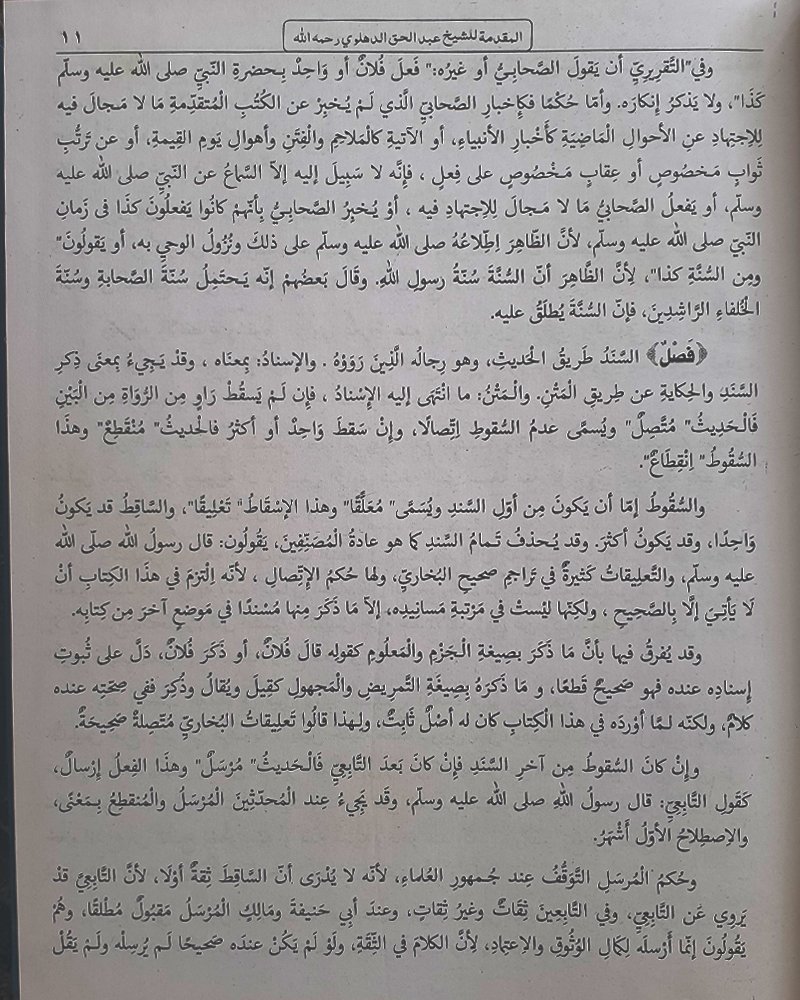 المقدمة للشيخ عبد الحق الدهلوي رحمه الله
١١
وفي"التَّقرِيرِيِّ أن يَقولَ الصَّحابيُّ أو غيرُه:" فَعلَ فُلانٌ أو وَاحِدٌ بِـحضرةِ النَّبيِّ صلى الله عليه وسلّم
كَذَا"، ولا يَذكرُ إنكارَه. وأمّا حُكْمًا فكإخبارِ الصَّحابيِّ الَّذي لَمْ يُـخبِرْ عن الكُتُبِ الْمُتقدّمةِ مَا لا مَـجالَ فيه
لِلاِجتِهادِ عنِ الأحوالِ الْمَاضِيَةِ كَأَخْبارِ الأنبياءِ، أو الآتيةِ كالْمَلاحِمِ والْفِتَنِ وأهوالِ يَومِ القِيمةِ، أو عن تَرَتُّبِ
ثَوابٍ مَـخصُوصٍ أو عِقابٍ مَـخْصُوصٍ على فِعلٍ ، فإنَّه لا سَبِيلَ إليه إلاّ السَّماعُ عن النّبيِّ صلى الله عليه
وسلّم، أو يَفعلُ الصَّحابيُّ مَا لا مَـجالَ لِلاِجتهادِ فيه ، أوْ يُـخبِرُ الصَّحابـيُّ بِأنّهمْ كانُوا يَفعلُونَ كذَا فى زَمانِ
النّبيِّ صلى الله عليه وسلّم، لأنَّ الظّاهِرَ اِطِّلاعُهُ صلى الله عليه وسلّم على ذلكَ ونُزُولُ الوحيِ به، أو يَقولُونَ"
ومِن السُّنَّةِ كذا"، لِأنَّ الظَّاهرَ أنّ السُّنَّةَ سُنّةُ رسولِ اللهِ. وقَالَ بَعضُهمْ إنّه يَـحتَمِلُ سُنّةَ الصَّحابةِ وسُنّةَ
الْخُلفاءِ الرَّاشِدِينَ، فإنّ السُّنَّةَ يُطلَقُ عليه.
﴿فَصْلٌ﴾ السَّنَدُ طَرِيقُ الْحَديثِ، وهو رِجالُه الَّذِينَ رَوَوْهُ . والإسنادُ: بِمعنَاه ، وقدْ يَـجِيءُ بِمعنَى ذِكرِ
السَّندِ والحِكايةِ عن طرِيقِ الْمَتْنِ. والْـمَتْنُ: ما انْتَهَى إليه الإِسْنادُ ، فإن لَمْ يَسقُطْ رَاوٍ مِن الرُّوَاةِ مِن الْبَيْنِ
فَالْـحَدِيثُ" مُتَّصِلٌ" ويُسمَّى عدمُ السُّقوطِ اِتِّصالًا، وإنْ سَقطَ وَاحِدٌ أو أكثرُ فالْحديثُ" مُنْقَطِعٌ" وهذا
السُّقُوطُ" اِنْقِطَاعٌ".
والسُّقُوطُ إمّا أن يَكونَ مِن أوّلِ السَّندِ ويُسَمَّى" مُعَلَّقًا" وهذا الإسْقَاطُ" تَعْلِيقًا"، والسَّاقِطُ قد يَكونُ
وَاحِدًا، وقد يَكونُ أكثرَ. وقد يُـحذفُ تَـمامُ السَّندِ كما هو عادةُ الْمُصَنِّفِينَ، يَقُولُون: قال رسولُ الله صلّى الله
عليه وسلّم، والتَّعلِيقاتُ كَثيرةٌ في تَراجمِ صحيحِ البُخاريِّ، ولها حُكمُ الاِتِّصالِ ، لأنّه اِلتزمَ في هذَا الكِتابِ أنْ
لَا يَأتِـيَ إلَّا بِالصَّحِيحِ ، ولكِنّها ليْستْ في مَرْتبةِ مَسانِيدِه، إلاّ مَا ذَكَرَ مِنها مُسْنَدًا في مَوضعٍ آخرَ مِن كِتابِه.
وقد يُفرقُ فيها بأنَّ مَا ذَكَرَ بصِيغةِ الْـجَزْمِ والْمَعلُومِ كقَولِه قالَ فُلانٌ، أو ذَكَرَ فُلانٌ، دَلَّ على ثُبوتِ
إسنادِه عنده فهو صَحيحٌ قَطعًا، و مَا ذَكَرَهُ بِصِيغَةِ التَّمريضِ والْمَجهولِ كقِيلَ ويُقالُ وذُكِرَ ففي صِحّتِه عنده
كلامٌ، ولكنّه لـمّا أوْرَدَه في هذا الْكِتابِ كان له أصْلٌ ثَابِتٌ، ولِـهذا قالُوا تَعلِيقاتُ البُخاريِّ مُتّصِلةٌ صَحِيحَةٌ.
وإنْ كانَ السُّقوطُ مِن آخرِ السَّنَدِ فإنْ كانَ بَعدَ التَّابِعِيِّ فَالْـحَديثُ" مُرْسَلٌ" وهذَا الفِعلُ إرْسالٌ،
كَقَولِ التَّابِعِيِّ: قال رسولُ اللهِ صلى الله عليه وسلّم، وقَد يَـجِيءُ عِند الْمُحدّثِينَ الْمُرْسَلُ والْمُنقطِعُ بِـمَعْنًى،
والاِصطِلاحُ الأوّلُ أَشْهَرُ.
وحُكمُ الْمُرسَلِ التَّوَقُّفُ عِند جُـمهورِ العُلماءِ، لأنّه لا يُدْرَى أنّ السَّاقِطَ ثِقةٌ أوْلَا، لأنّ التَّابِعِيَّ قدْ
يَروِي عَنِ التَّابِعِيِّ، وفي التَّابِعِينَ ثِقَاتٌ وغيرُ ثِقاتٍ، وعندَ أبي حَنيفةَ ومَالِكٍ الْمُرْسَلُ مَقبُولٌ مُطْلقًا، وهُمْ
يَقُولُونَ إنّما أَرْسلَه لِكمالِ الوُثُوقِ والاِعتِمادِ، لِأنَّ الكلامَ في الثِّقَةِ، ولَوْ لَمْ يَكُنْ عندَه صَحيحًا لَم يُرسِلْه ولَمْ يَقُلْ